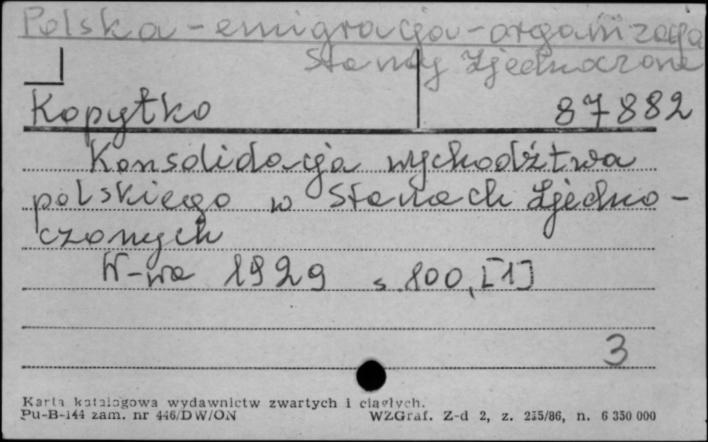 Polska - emigracja - organizacja
Stany Zjednoczone
Kopytko 87882
Konsolidacja wychodźtwa
polskiego w Stanach Zjedno-
czonych
W-wa 1929 s. 100, [1]
3
Karta katalogowa wydawnictw zwartych i ciągłych.
Pu-B-144 zam. nr 446/DW/ON WZGraf. Z-d 2, z. 255/86, n. 6 350 000